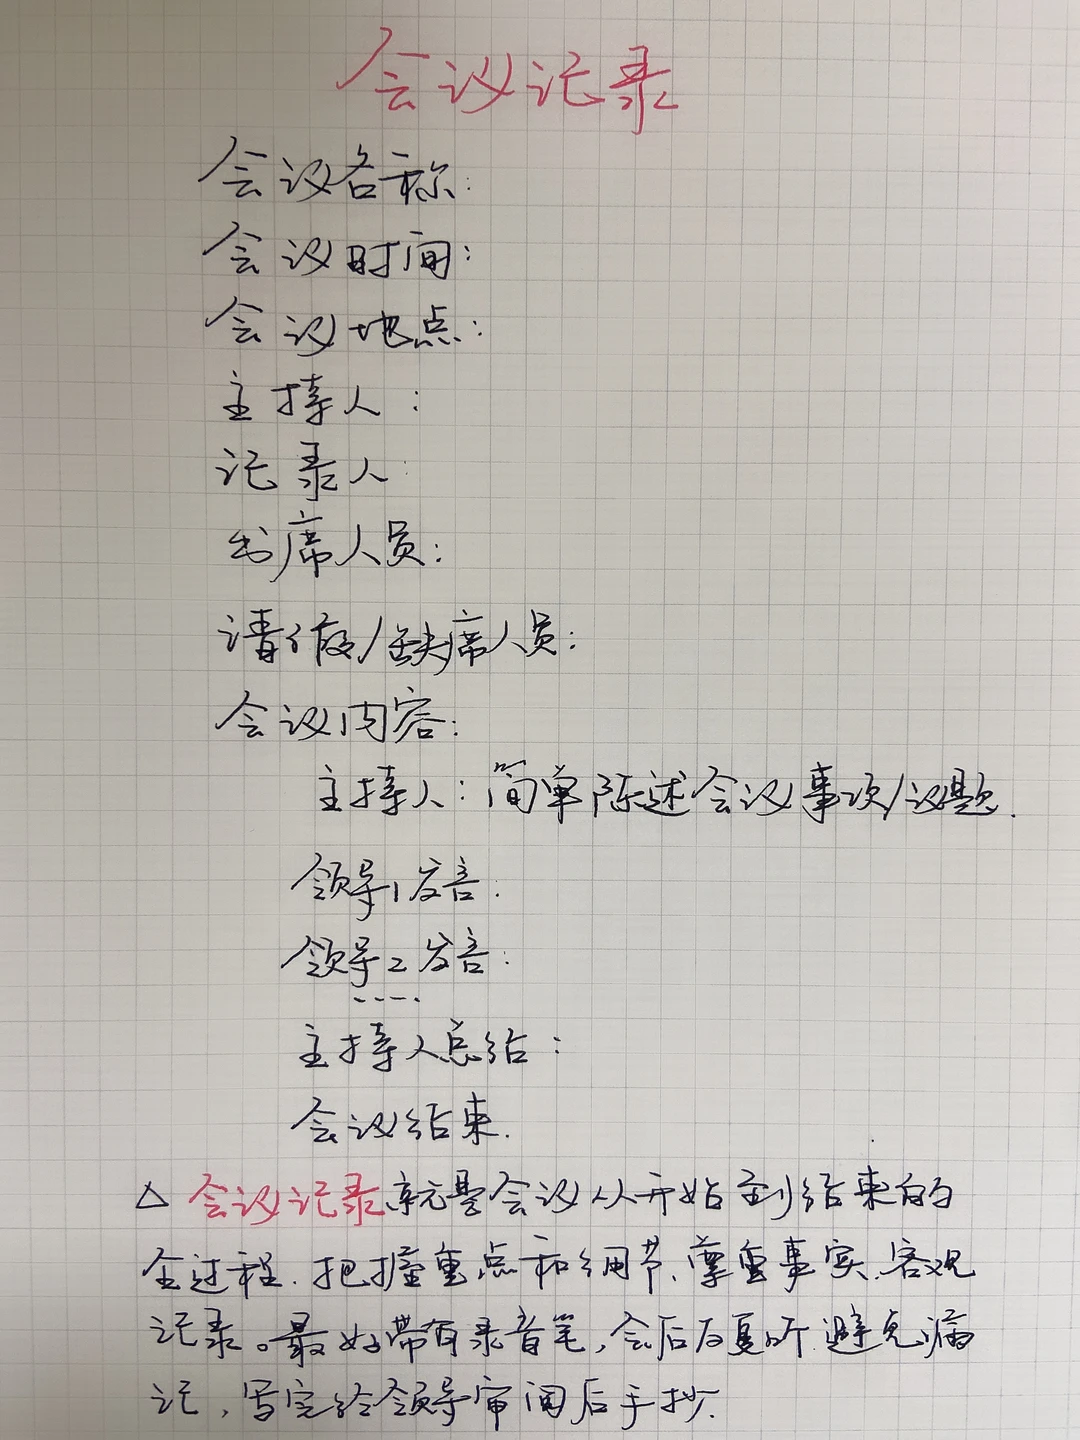 会议记录
会议名称:
会议时间:
会议地点:
主持人:
记录人:
出席人员:
请假/缺席人员:
会议内容:
主持人:简单陈述会议事项/议题.
领导1发言:
领导2发言:
....
主持人总结:
会议结束.
△会议记录就是会议从开始到结束的
全过程.把握重点和细节、尊重事实、客观
记录。最好带有录音笔,会后反复听.避免漏
记,写完给领导审阅后手抄.